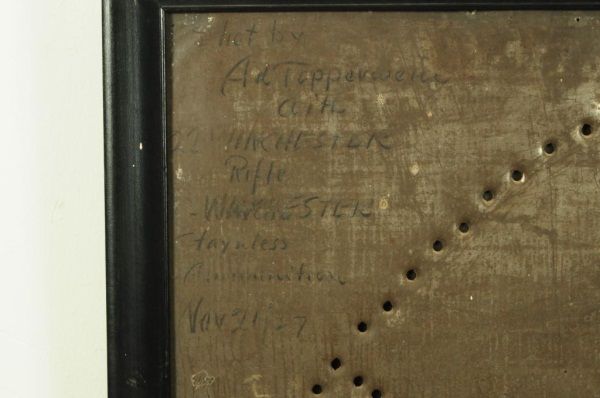 Shot by
Ad Topperwein
with
22 WINCHESTER
Rifle
- WINCHESTER
Staynless
Ammunition
Nov 21/27